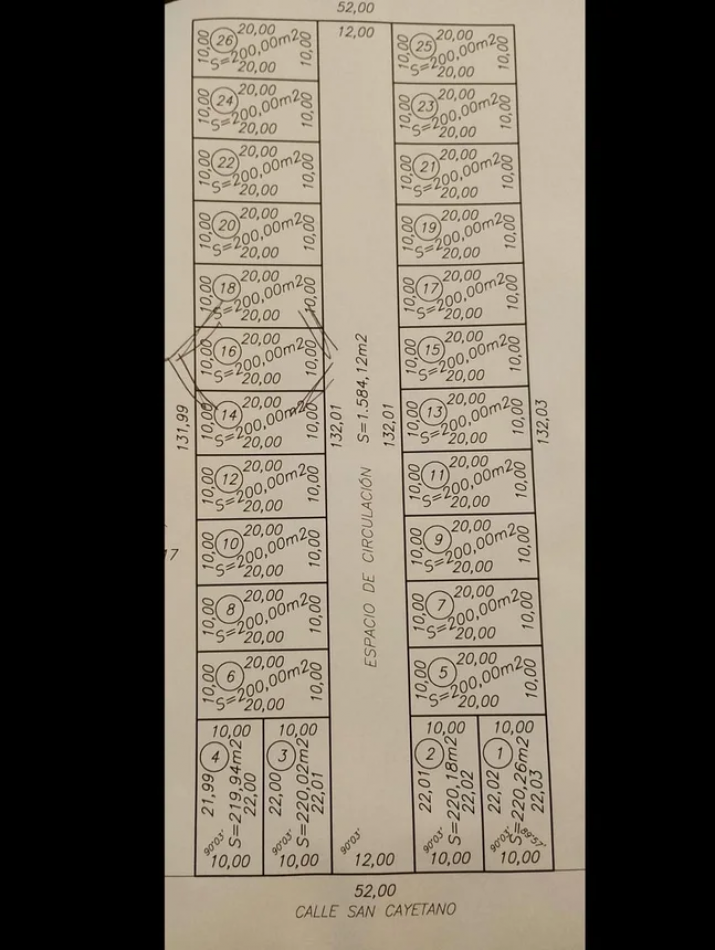 52,00
12,00
26
20,00
10,00
S=200,00m2
10,00
20,00
25
20,00
10,00
S=200,00m2
10,00
20,00
24
20,00
10,00
S=200,00m2
10,00
20,00
23
20,00
10,00
S=200,00m2
10,00
20,00
22
20,00
10,00
S=200,00m2
10,00
20,00
21
20,00
10,00
S=200,00m2
10,00
20,00
20
20,00
10,00
S=200,00m2
10,00
20,00
19
20,00
10,00
S=200,00m2
10,00
20,00
18
20,00
10,00
S=200,00m2
10,00
20,00
17
20,00
10,00
S=200,00m2
10,00
20,00
16
20,00
10,00
S=200,00m2
10,00
20,00
15
20,00
10,00
S=200,00m2
10,00
20,00
14
20,00
10,00
S=200,00m2
10,00
20,00
13
20,00
10,00
S=200,00m2
10,00
20,00
131,99
132,01
S=1.584,12m2
132,01
132,03
12
20,00
10,00
S=200,00m2
10,00
20,00
11
20,00
10,00
S=200,00m2
10,00
20,00
ESPACIO DE CIRCULACIÓN
17
10
20,00
10,00
S=200,00m2
10,00
20,00
9
20,00
10,00
S=200,00m2
10,00
20,00
8
20,00
10,00
S=200,00m2
10,00
20,00
7
20,00
10,00
S=200,00m2
10,00
20,00
6
20,00
10,00
S=200,00m2
10,00
20,00
5
20,00
10,00
S=200,00m2
10,00
20,00
10,00
4
21,99
S=219,94m2
22,00
90°03'
10,00
10,00
3
22,00
S=220,02m2
22,01
10,00
90°03'
12,00
10,00
2
22,01
S=220,18m2
22,02
90°03'
10,00
10,00
1
22,02
S=220,26m2
22,03
90°03'
89°57'
10,00
52,00
CALLE SAN CAYETANO